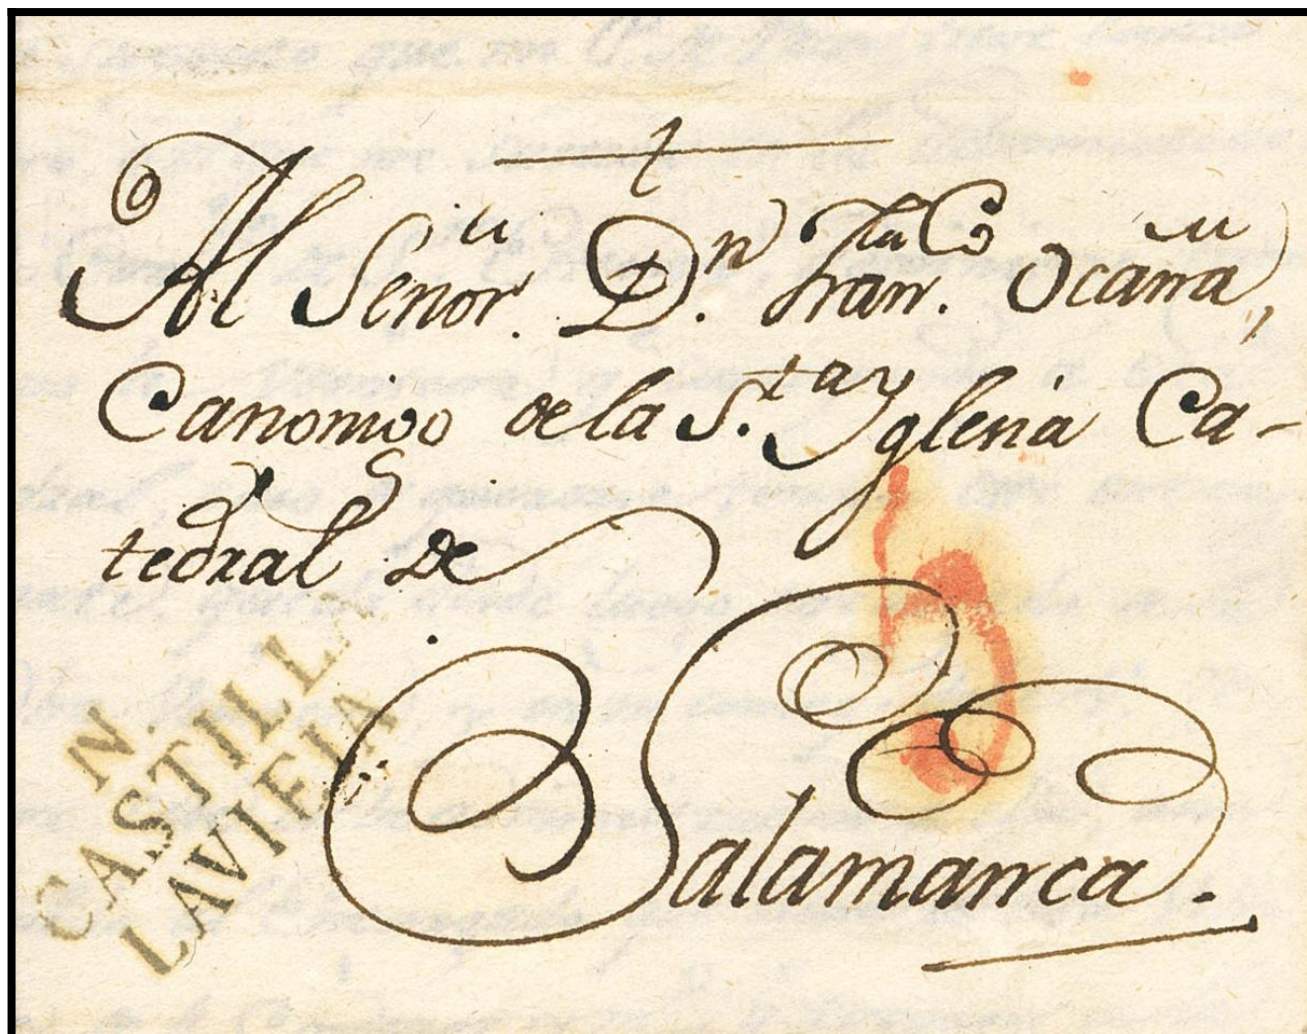 Al Señor. Dn. Franco. Ocaña,
Canonigo de la S.ta Yglesia Ca-
tedral de
Salamanca.
N.
CASTILLA
LAVIEIA
5